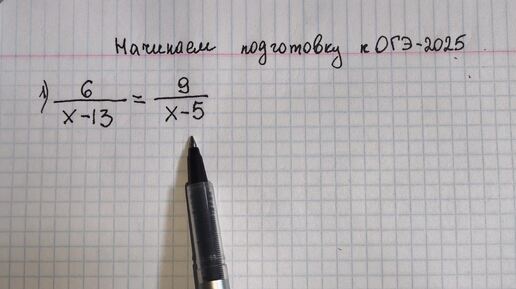 Начинаем подготовку к ОГЭ-2025
1) 6/(x-13) = 9/(x-5)